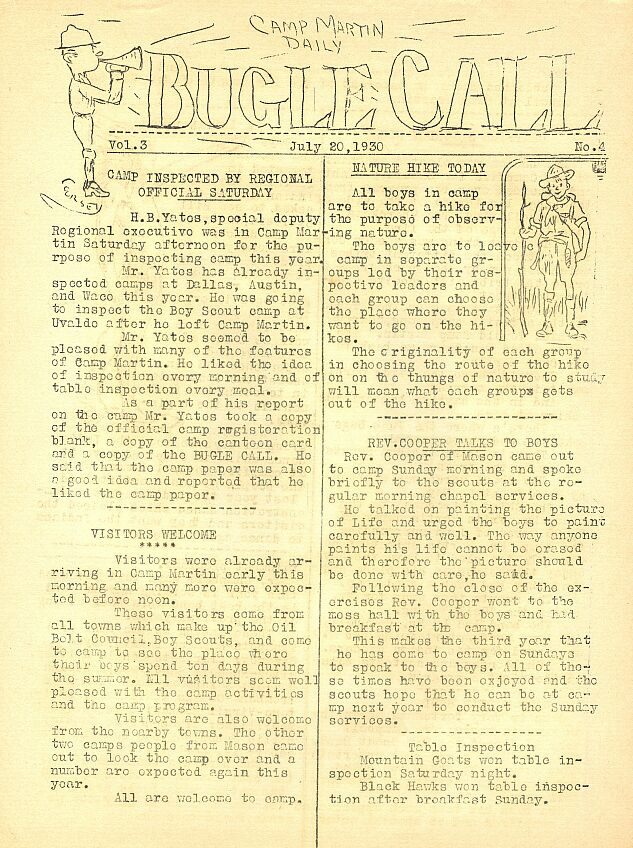 CAMP MARTIN
DAILY
BUGLE CALL
Vol.3 July 20,1930 No.4
CAMP INSPECTED BY REGIONAL
OFFICIAL SATURDAY
H.B.Yates,special deputy
Regional executive was in Camp Mar-
tin Saturday afternoon for the pu-
rpose of inspecting camp this year.
Mr. Yates has already in-
spected camps at Dallas, Austin,
and Waco this year. He was going
to inspect the Boy Scout camp at
Uvalde after he left Camp Martin.
Mr. Yates seemed to be
pleased with many of the features
of Camp Martin. He liked the idea
of inspection every morning and of
table inspection every meal.
As a part of his report
on the camp Mr. Yates took a copy
of the official camp registeration
blank, a copy of the canteen card
and a copy of the BUGLE CALL. He
said that the camp paper was also
a good idea and reported that he
liked the camp paper.
VISITORS WELCOME
*****
Visitors were already ar-
riving in Camp Martin early this
morning and many more were expec-
ted before noon.
These visitors come from
all towns which make up the Oil
Belt Council,Boy Scouts, and come
to camp to see the place where
their boys spend ten days during
the summer. All visitors seem well
pleased with the camp activities
and the camp program.
Visitors are also welcome
from the nearby towns. The other
two camps people from Mason came
out to look the camp over and a
number are expected again this
year.
All are welcome to camp.
NATURE HIKE TODAY
All boys in camp
are to take a hike for
the purpose of observ-
ing nature.
The boys are to leave
camp in separate gr-
oups led by their res-
pective leaders and
each group can choose
the place where they
want to go on the hi-
kes.
The originality of each group
in choosing the route of the hike
on on the thungs of nature to study
will mean what each groups gets
out of the hike.
REV.COOPER TALKS TO BOYS
Rev. Cooper of Mason came out
to camp Sunday morning and spoke
briefly to the scouts at the re-
gular morning chapel services.
He talked on painting the picture
of Life and urged the boys to paint
carefully and well. The way anyone
paints his life cannot be erased
and therefore the picture should
be done with care,he said.
Following the close of the ex-
ercises Rev. Cooper went to the
mess hall with the boys and had
breakfast at the camp.
This makes the third year that
he has come to camp on Sundays
to speak to the boys. All of the-
se times have been exjoyed and the
scouts hope that he can be at ca-
mp next year to conduct the Sunday
services.
Table Inspection
Mountain Goats won table in-
spection Saturday night.
Black Hawks won table inspec-
tion after breakfast Sunday.